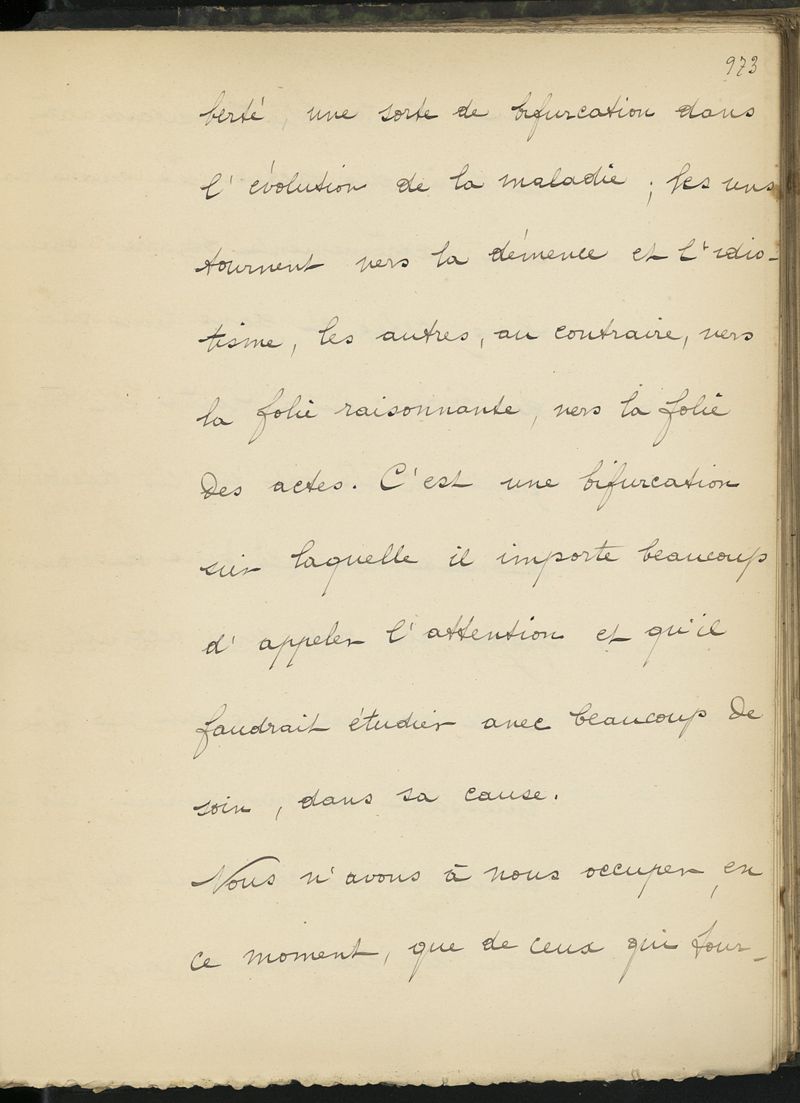 973
berté, une sorte de bifurcation dans
l'évolution de la maladie ; les uns
tournent vers la démence et l'idio-
tisme, les autres, au contraire, vers
la folie raisonnante, vers la folie
des actes. C'est une bifurcation
sur laquelle il importe beaucoup
d'appeler l'attention et qu'il
faudrait étudier avec beaucoup de
soin, dans sa cause.
Nous n'avons à nous occuper, en
ce moment, que de ceux qui tour-